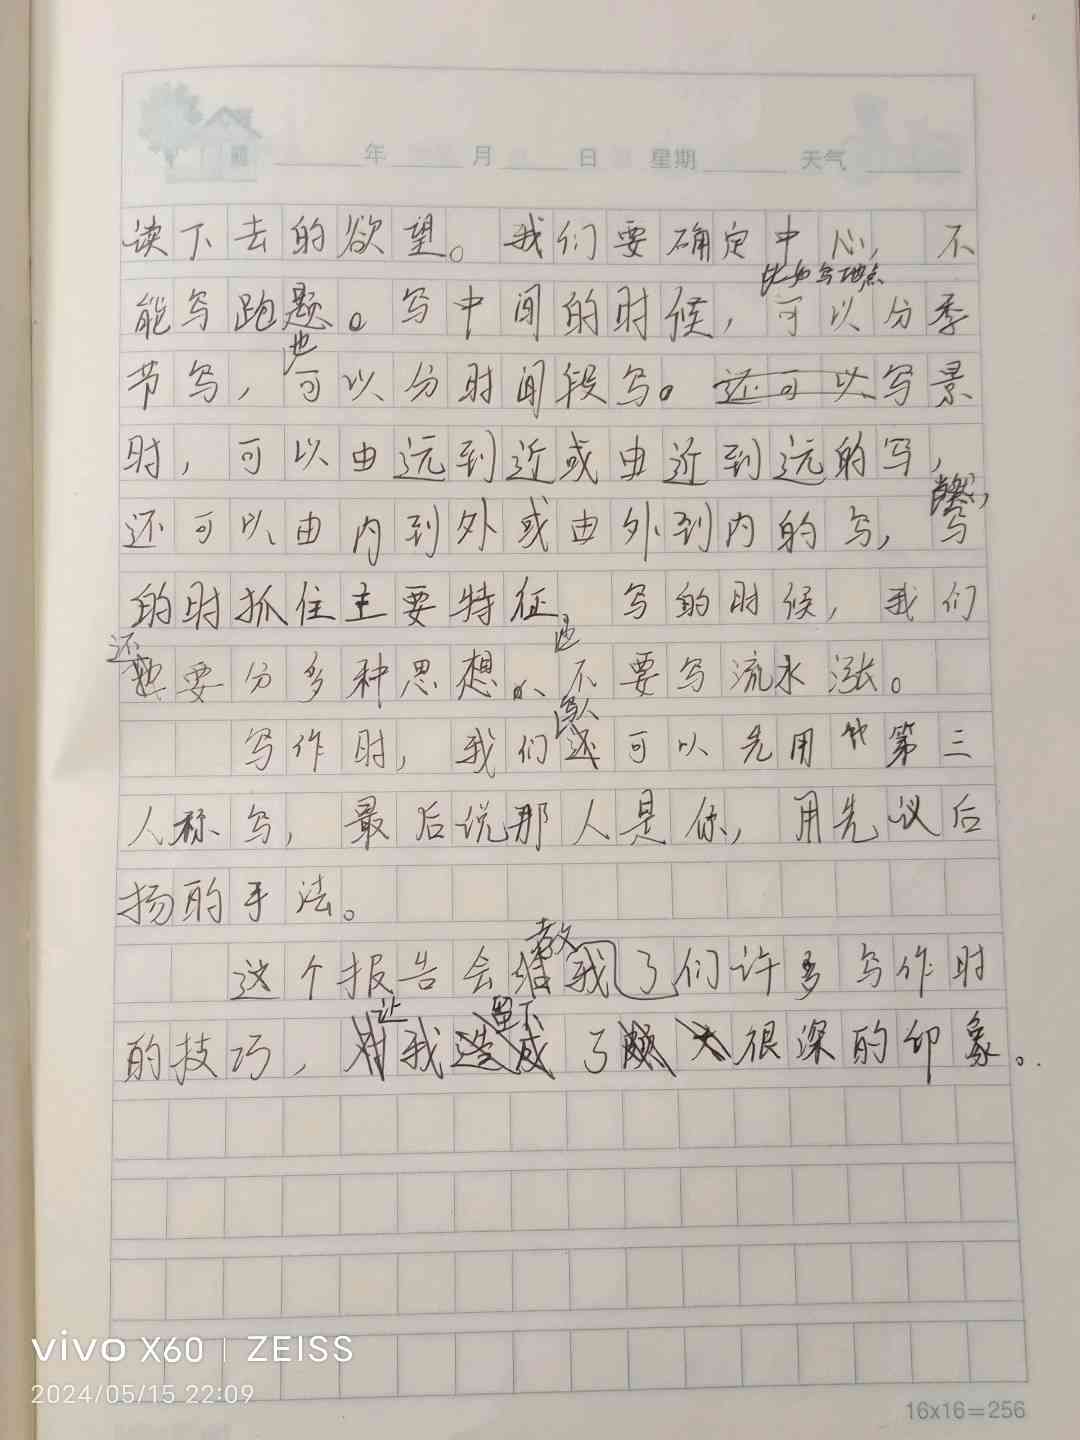 年 月 日 星期 天气
读下去的欲望。我们要确定中心,不
比如写地点
能写跑题。写中间的时候,可以分季
也
节写,可以分时间段写。还可以写景
时,可以由远到近或由近到远的写,
还可以由内到外或由外到内的写,写
的时抓住主要特征。写的时候,我们
还 也
要分多种思想、不要写流水涨。
写人
写作时,我们还可以先用 第三
人称写,最后说那人是你,用先议后
扬的手法。
教
这个报告会给我了们许多写作时
让 留下
的技巧,对我造成了 大很深的印象。
vivo X60 | ZEISS
2024/05/15 22:09
16x16=256